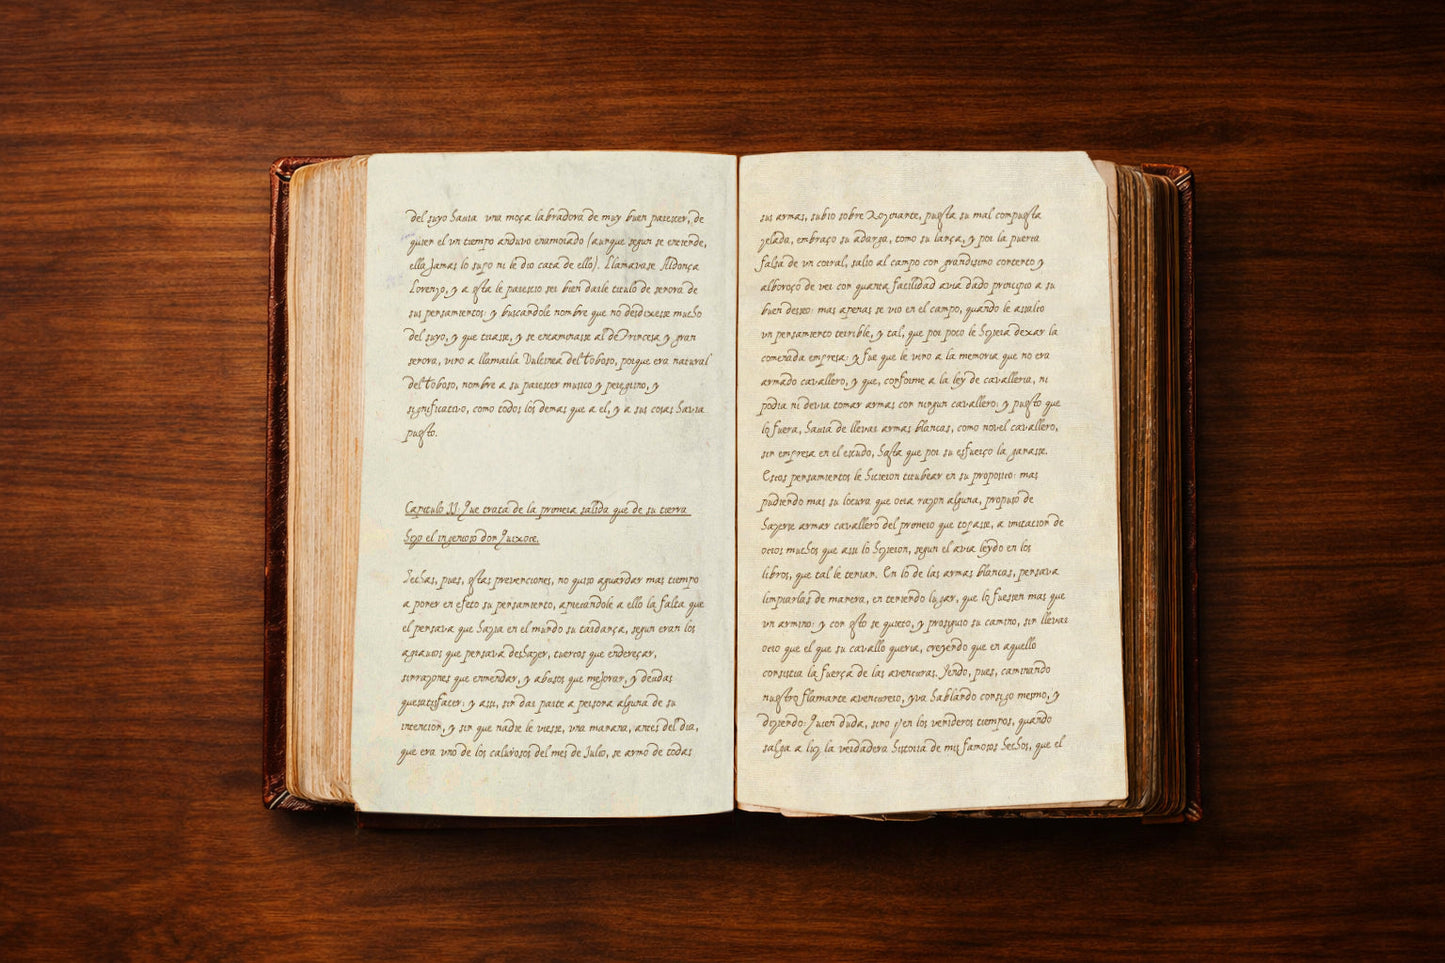 del suyo havia vna moça labradora de muy buen parescer, de
quien el vn tiempo anduvo enamorado (aunque segun se entiende,
ella jamas lo supo ni le dio cata de ello). Llamavase Aldonça
Lorenzo, y a esta le parescio ser bien darle titulo de senora de
sus pensamientos: y buscandole nombre que no desdixesse mucho
del suyo, y que tirasse, y se encaminasse al de Princesa y gran
senora, vino a llamarla Dulcinea del Toboso, porque era natural
del Toboso, nombre a su parescer musico y peregrino, y
significativo, como todos los demas que a el, y a sus cosas havia
puesto.
Capitulo II: Que trata de la primera salida que de su tierra
hizo el ingenioso don Quixote.
Hechas, pues, estas prevenciones, no quiso aguardar mas tiempo
a poner en efeto su pensamiento, apretandole a ello la falta que
el pensava que hazia en el mundo su tardança, segun eran los
agravios que pensava deshazer, tuertos que endereçar,
sinrazones que enmendar, y abusos que mejorar, y deudas
quesatisfacer: y assi, sin dar parte a persona alguna de su
intencion, y sin que nadie le viesse, vna manana, antes del dia,
que era vno de los calurosos del mes de Julio, se armo de todas
sus armas, subio sobre Rozinante, puesta su mal compuesta
zelada, embraço su adarga, tomo su lança, y por la puerta
falsa de vn corral, salio al campo con grandisimo contento y
alboroço de ver con quanta facilidad avia dado principio a su
buen desseo: mas apenas se vio en el campo, quando le assalto
vn pensamiento terrible, y tal, que por poco le hiziera dexar la
comenzada empresa: y fue que le vino a la memoria que no era
armado cavallero, y que, conforme a la ley de cavalleria, ni
podia ni devia tomar armas con ningun cavallero: y puesto que
lo fuera, havia de llevar armas blancas, como novel cavallero,
sin empresa en el escudo, hasta que por su esfuerço la ganasse.
Estos pensamientos le hicieron titubear en su proposito: mas
pudiendo mas su locura que otra razon alguna, propuso de
hazerse armar cavallero del primero que topasse, a imitacion de
otros muchos que assi lo hizieron, segun el avia leydo en los
libros, que tal le tenian. En lo de las armas blancas, pensava
limpiarlas de manera, en teniendo lugar, que lo fuessen mas que
vn armino: y con esto se quieto, y prosiguio su camino, sin llevar
otro que el que su cavallo queria, creyendo que en aquello
consistia la fuerça de las aventuras. Yendo, pues, caminando
nuestro flamante aventurero, yva hablando consigo mesmo, y
diziendo: Quien duda, sino q̃ en los venideros tiempos, quando
salga a luz la verdadera historia de mis famosos hechos, que el